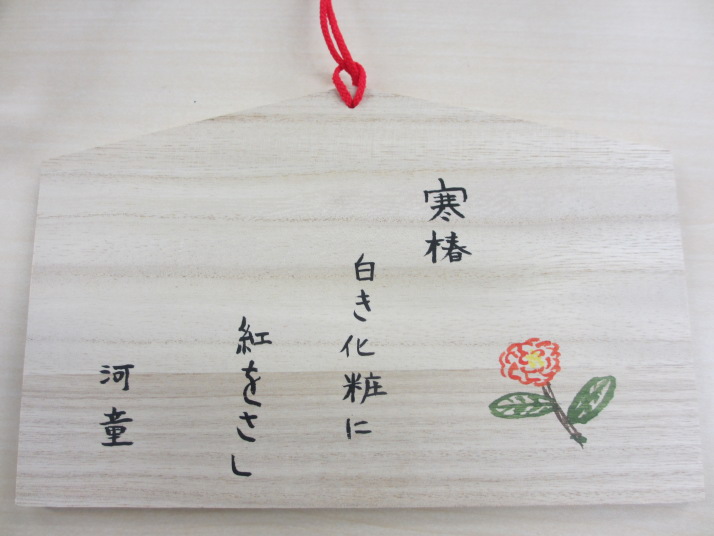 寒椿
白き化粧に
紅をさし
河童